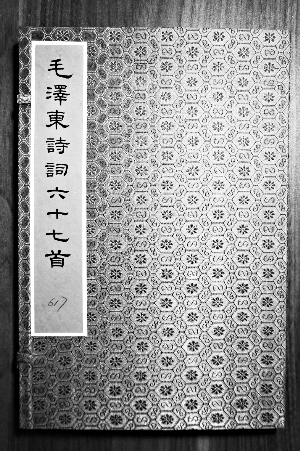 毛澤東詩詞六十七首
617